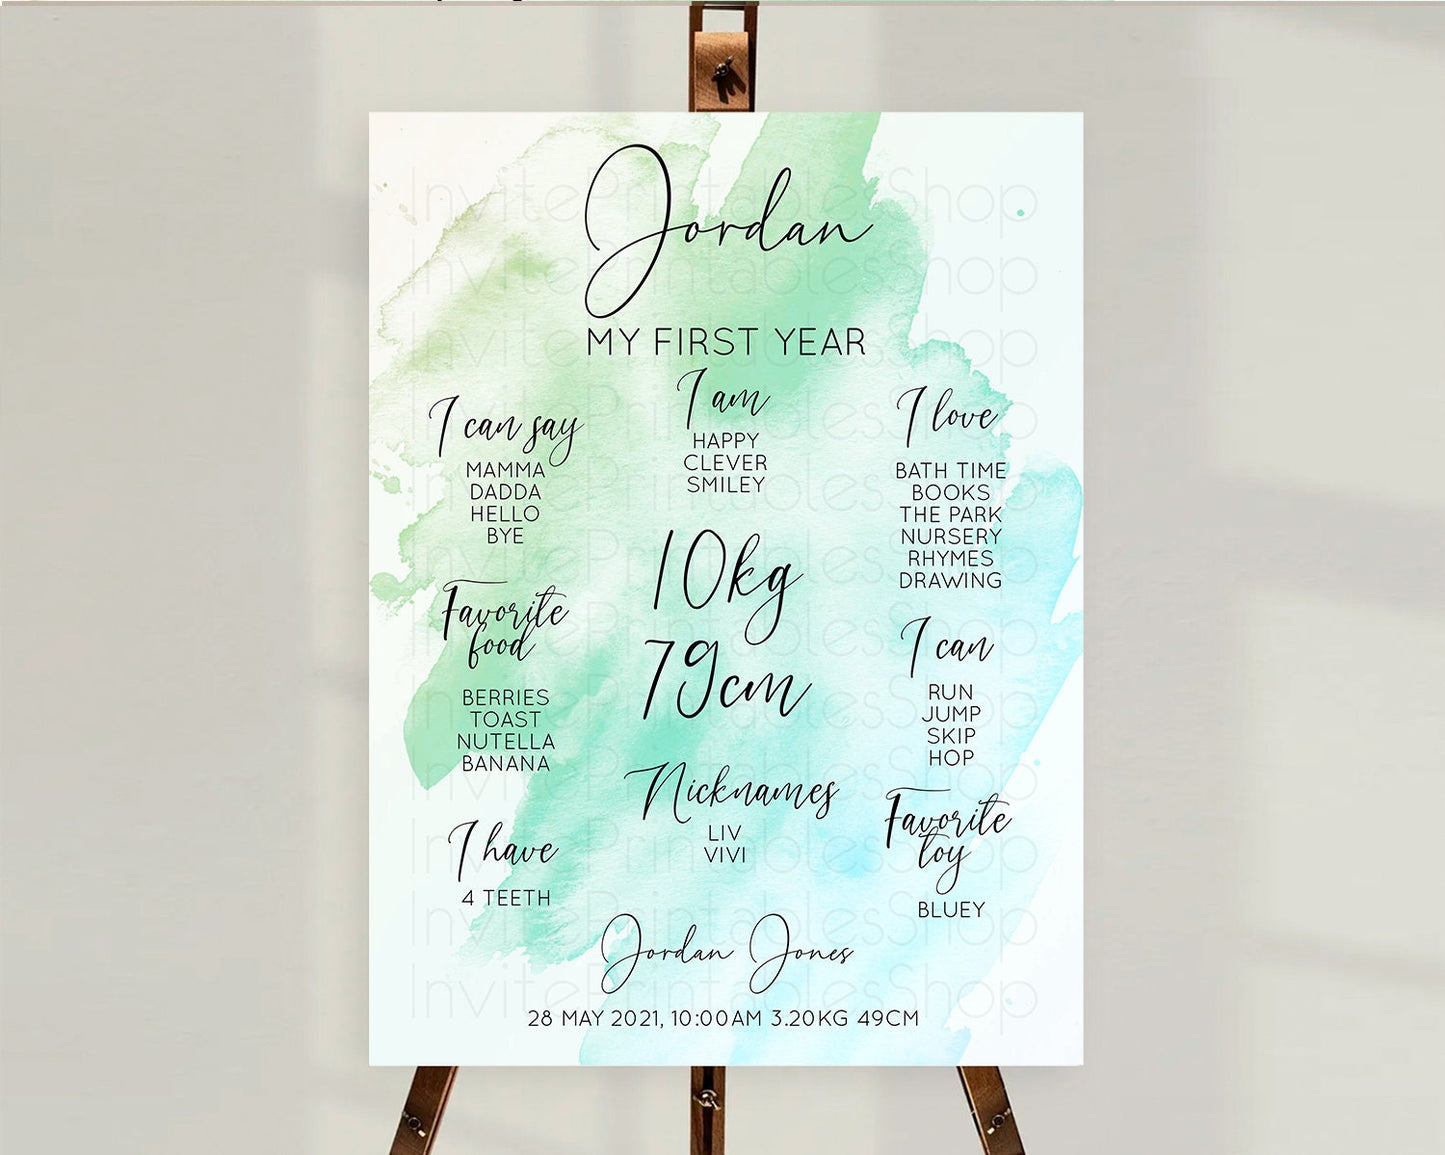 Jordan
MY FIRST YEAR
I can say
MAMMA
DADDA
HELLO
BYE
I am
HAPPY
CLEVER
SMILEY
I love
BATH TIME
BOOKS
THE PARK
NURSERY
RHYMES
DRAWING
10kg
79cm
Favorite
food
BERRIES
TOAST
NUTELLA
BANANA
I can
RUN
JUMP
SKIP
HOP
Nicknames
LIV
VIVI
I have
4 TEETH
Favorite
toy
BLUEY
Jordan Jones
28 MAY 2021, 10:00AM 3.20KG 49CM
InvitePrintablesShop
InvitePrintablesShop
InvitePrintablesShop
InvitePrintablesShop
InvitePrintablesShop
InvitePrintablesShop
InvitePrintablesShop
InvitePrintablesShop
InvitePrintablesShop
InvitePrintablesShop
InvitePrintablesShop